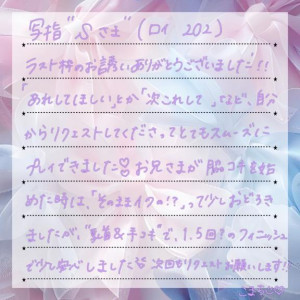 写指"Sさま"(ロイ 202)
ラスト枠のお誘いありがとうございました!!
「あれしてほしい」とか「次これして」など、自分
からリクエストしてくださってとてもスムーズに
プレイできました♡お兄さまが脇コキを始
めた時は、「そのままイクの!?」って少しおどろき
ましたが、"乳首&手コキ"で、1.5回?のフィニッシュ
で少し安心しました 次回もリクエストお願いします!